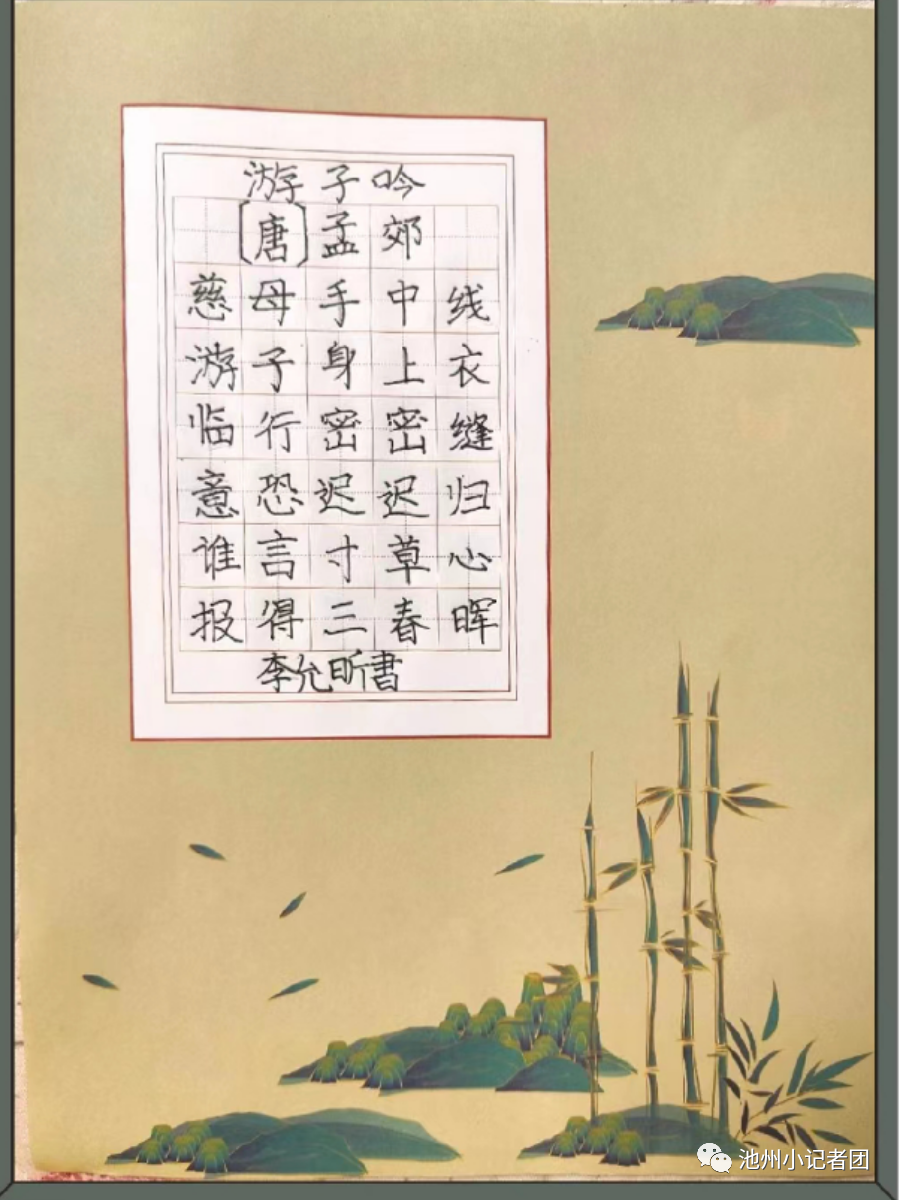 游子吟
[唐]孟郊
慈母手中线
游子身上衣
临行密密缝
意恐迟迟归
谁言寸草心
报得三春晖
李允昕書
池州小记者团